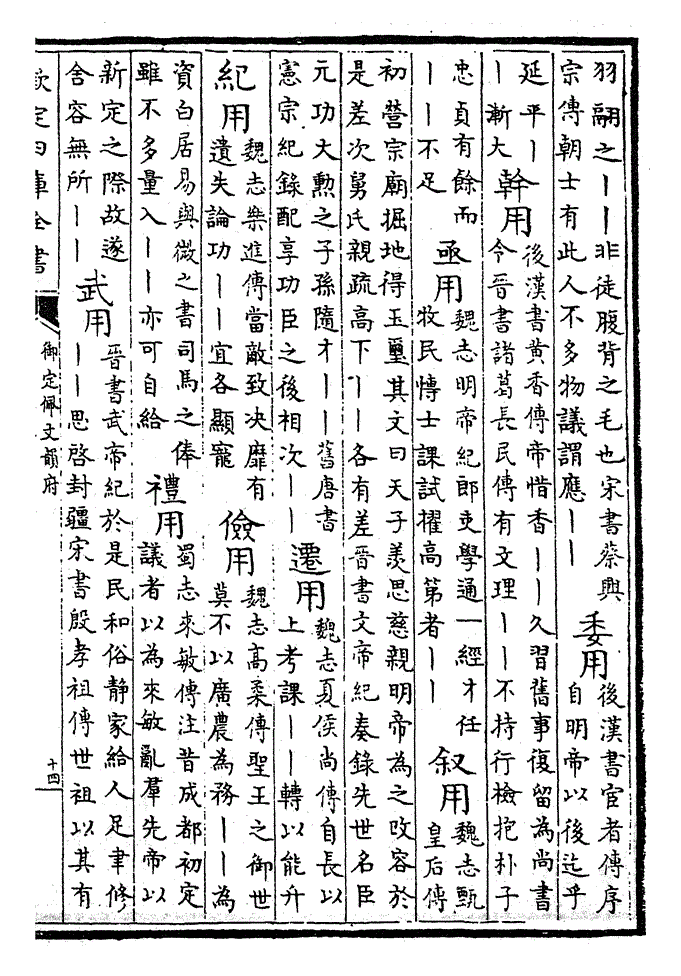 羽翮之丨丨非徒腹背之毛也宋書蔡興
宗傳朝士有此人不多物議謂應丨丨
委用
後漢書宦者傳序
自明帝以後迄乎
延平丨
丨漸大
幹用
後漢書黄香傳帝惜香丨丨久習舊事復留為尚書
令晉書諸葛長民傳有文理丨丨不持行檢抱朴子
忠貞有餘而
丨丨不足
亟用
魏志明帝紀郎吏學通一經才任
牧民博士課試擢高第者丨丨
叙用
魏志甄
皇后傳
初營宗廟掘地得玉璽其文曰天子羨思慈親明帝為之改容於
是差次舅氏親疏高下丨丨各有差晉書文帝紀奏錄先世名臣
元功大勲之子孫隨才丨丨舊唐書
憲宗紀錄配享功臣之後相次丨丨
遷用
魏志夏侯尚傳自長以
上考課丨丨轉以能升
紀用
魏志樂進傳當敵致决靡有
遺失論功丨丨宜各顯寵
儉用
魏志高柔傳聖王之御世
莫不以廣農為務丨丨為
資白居易與微之書司馬之俸
雖不多量入丨丨亦可自給
禮用
蜀志來敏傳注昔成都初定
議者以為來敏亂羣先帝以
新定之際故遂
含容無所丨丨
武用
晉書武帝紀於是民和俗静家給人足聿修
丨丨思啓封疆宋書殷孝祖傳世祖以其有
欽定四庫全書
御定佩文韻府
十四